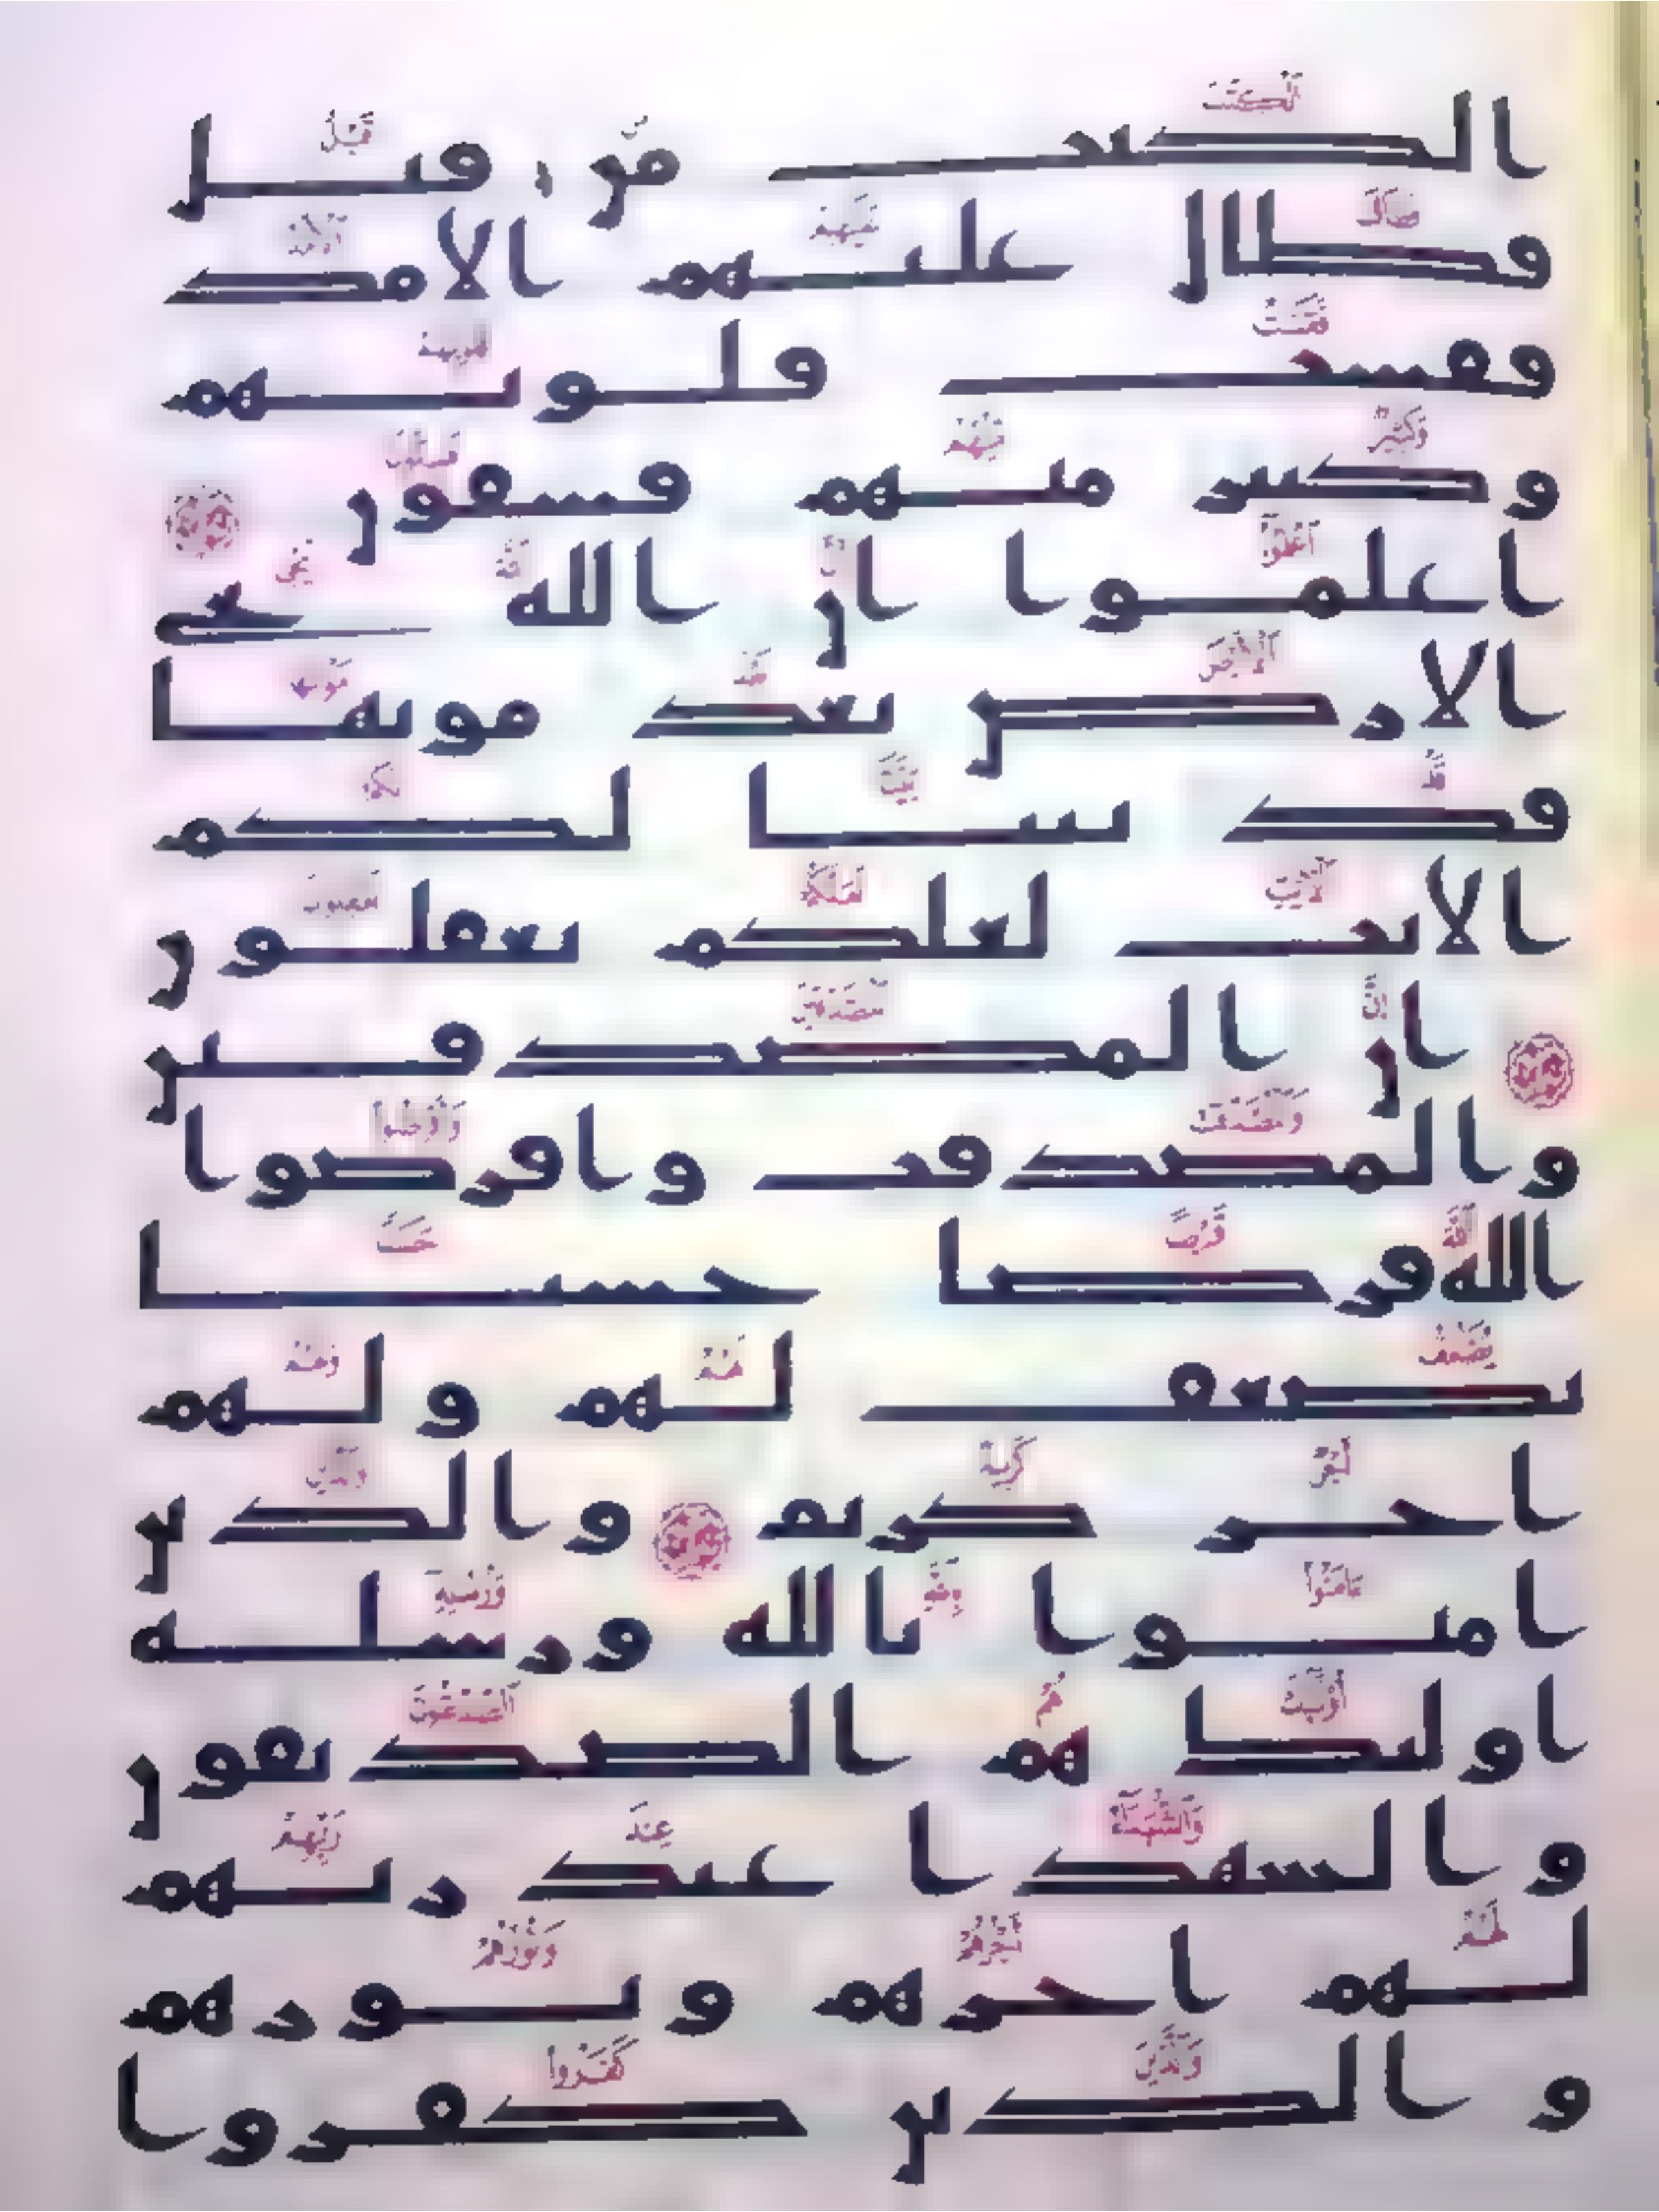 الكتب من قبل
فطال عليهم الامد
فقست قلوبهم
وكثير منهم فسقون
اعلموا ان الله يحي
الارض بعد موتها
قد بينا لكم
الايت لعلكم تعقلون
ان المصدقين
والمصدقت واقرضوا
الله قرضا حسنا
يضعف لهم ولهم
اجر كريم والذين
امنوا بالله ورسله
اولئك هم الصديقون
والشهدا عند ربهم
لهم اجرهم ونورهم
والذين كفروا